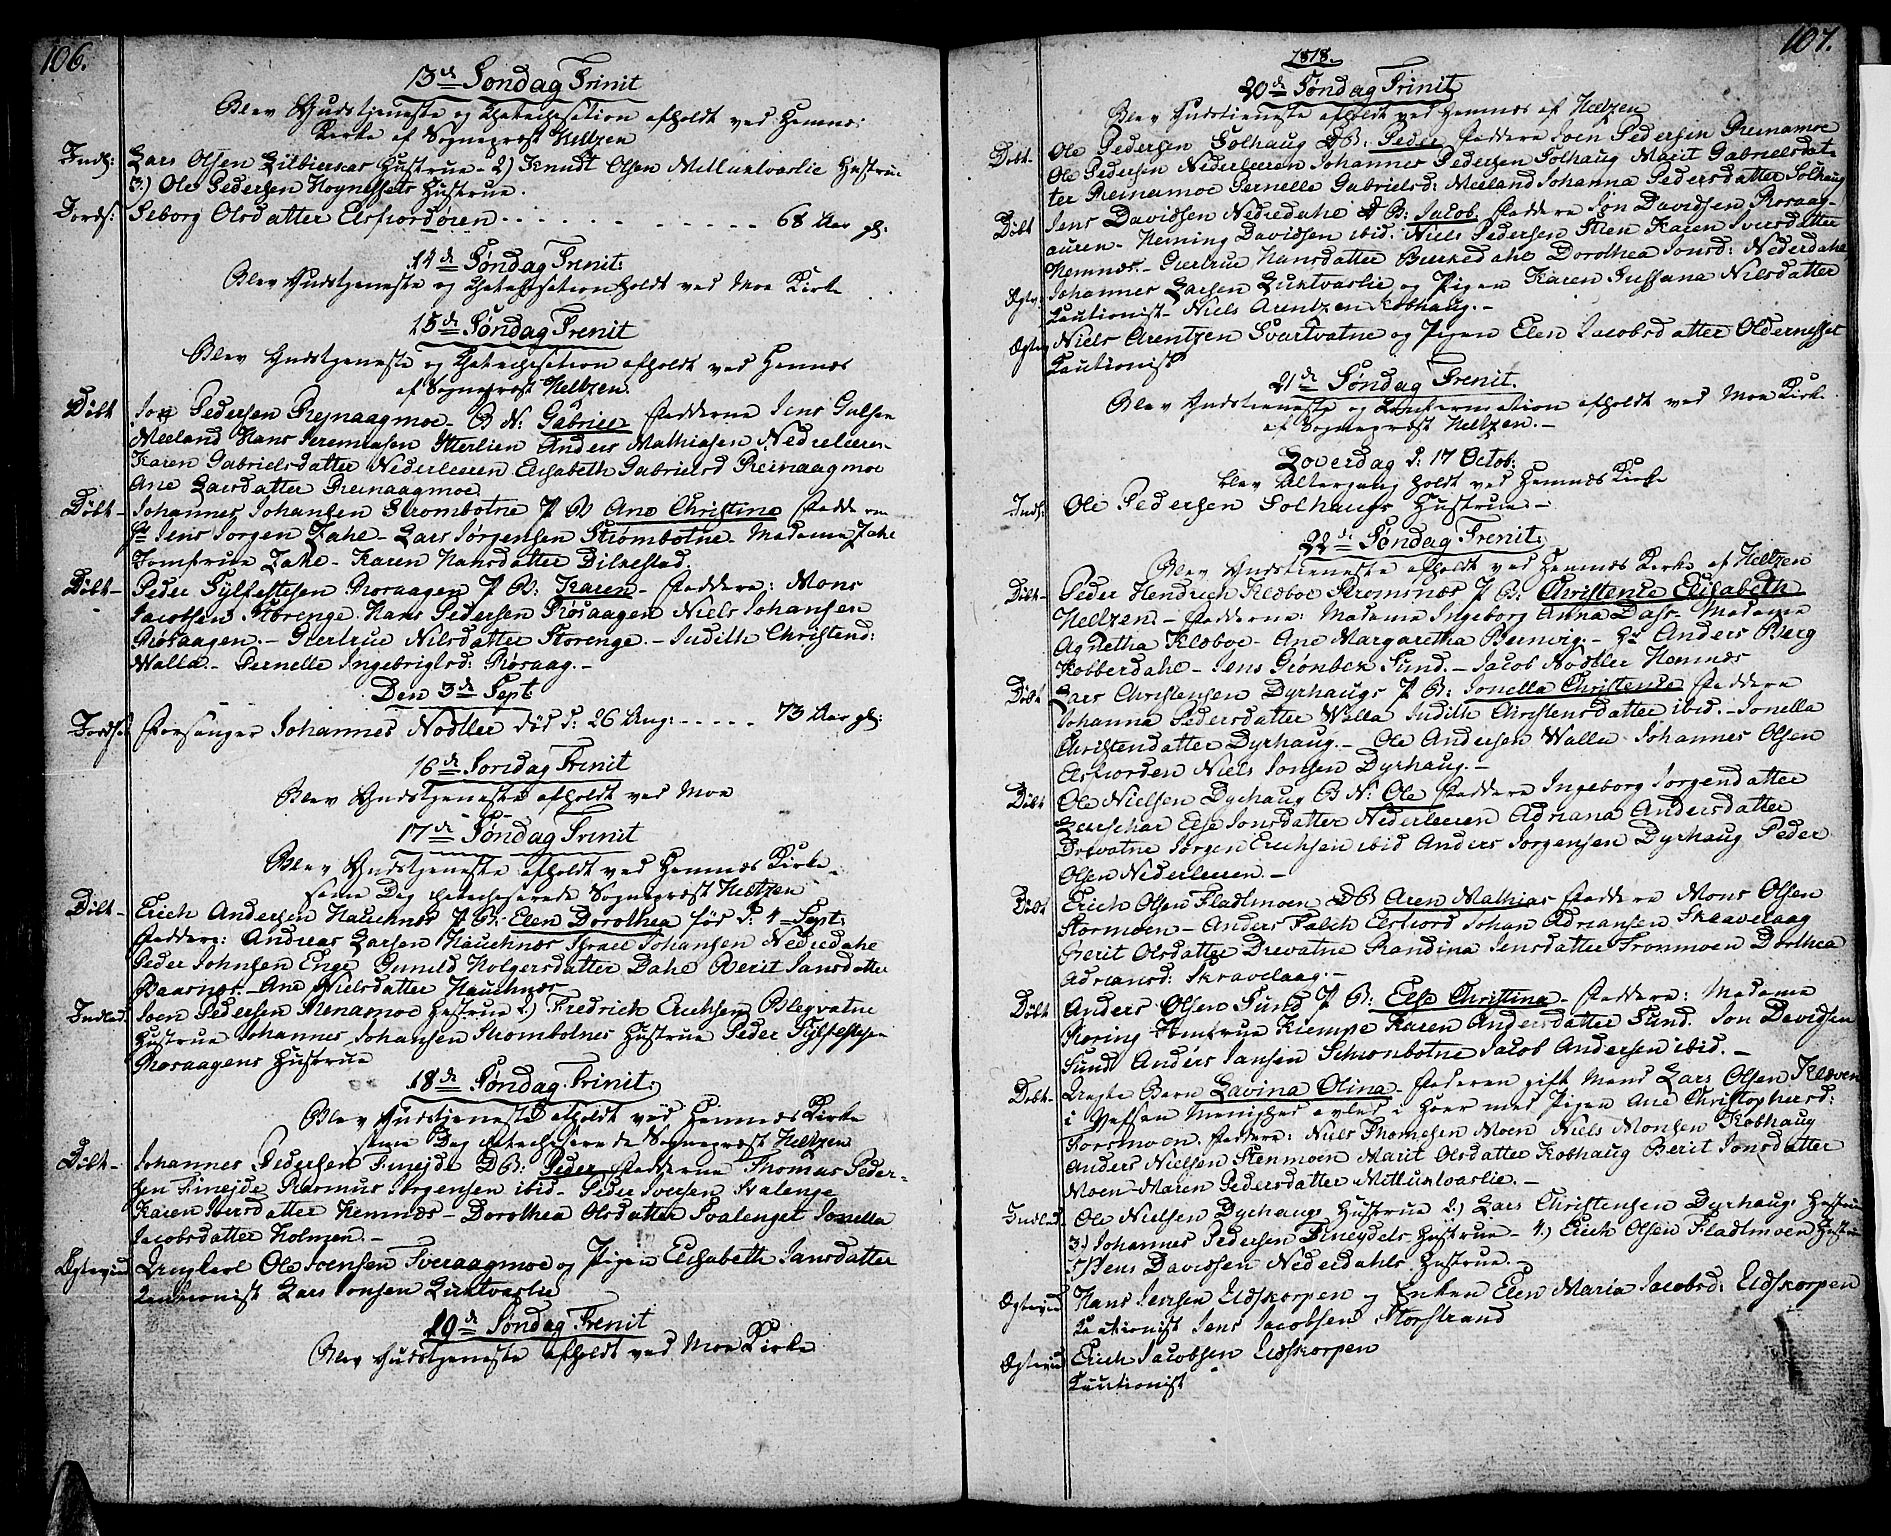 106.
13de Søndag Trinit
Blev Gudstjeneste og Catechesation afholdt ved Hemnæs
Kirke af Sogneprest Heltzen
Indl: Lars Olsen Hustrue - 2) Knudt Olsen Mellunlvaslie Hustrue
3.) Ole Pedersen Hognessets Hustrue.
Jords: Seborg Olsdatter Elsfiordøren - - - - - 68 Aar gl:
14de Søndag Trinit:
Blev Gudstjeneste og Catechesation holdt ved Moe Kirke
15de Søndag Trenit
Blev Gudstjeneste og Catechesation afholdt ved Hemnæs
af Sogneprest Heltzen.
Døbt Jon Pedersen Reinaagmoe - B N: Gabriel Fadderne Jens
Meeland Hans Jeremiasen Ytterlien Anders Mathiasen Nedreleeren
Karen Gabrielsdatter Nederleeren Elisabeth Gabrielsd Reinaagmoe
Ane Larsdatter Reinaagmoe
Døbt - Johannes Johansen Strombotne P B Ane Christine Faddere
Hr Jens Jørgen Zahl - Lars Jørgensen Strømbotne - Madame Zahl
Jomfrue Zahl - Karen Hansdatter Dilkestad
Døbt - Peder Sylfestesen Roraagen P B: Karen - Faddere: Mons
Jacobsen Storenge Hans Pedersen Røsaagen Niels Johansen
Røsaagen. - Giertrue Nilsdatter Storenge. - Judith Christend:
Walla - Pernelle Ingebriglsd: Røsaag. -
Den 3de Sept
Jords: Forsanger Johannes Nodtler død d: 26 Aug: - - - - - 73 Aar gl:
16de Søndag Trenit
Blev Gudstjeneste afholdt ved Moe
17de Søndag Trinit
Blev Gudstjeneste afholdt ved Hemnæs Kirke
samme Dag Catecheserede Sogneprest Heltzen
Døbt - Erich Andersen Hauchnæs P B: Elen Dorothea fød d: 4 Sept:
Faddere: Andreas Larsen Hauchnæs Israel Johansen Nedredahl
Peder Johnsen Enge Gunild Holgersdatter Dahl Berit Jansdatter
Baarnæs. - Ane Nielsdatter Hauchnæs
Indled Joen Pedersen Renamoe Hustrue 2) Fredrich Erichsen Blegvatne
Hustrue Johannes Johansen Strombotnes Hustrue Peder Sylfestesen
Roraagens Hustrue
18de Søndag Trinit:
Blev Gudstjeneste afholdt ved Hemnæs Kirke
samme Dag Catecheserede Sogneprest Heltzen
Døbt - Johannes Pedersen Finejde DB: Peder Fadderne Thomas Peder-
sen Finejde Rasmus Jørgensen ibid - Peder Iversen Svalenge
Karen Iversdatter Hemnæs - Dorothea Olsdatter Svalenget Jonella
Jacobsdatter Holmen. -
Ægtevied Ungkarl Ole Svensen Sveraagmoe og Pigen Elisabeth Jansdatter
Cautionist Lars Jonsen Luktvaslie
19de Søndag Trenit
Blev Gudstjeneste afholdt ved Moe Kirke
107.
1818.
20de Søndag Trinit
Blev Gudstieneste afholdt ved Hemnæs af Heltzen
Døbt. Ole Pedersen Solhaug DB: Peder Faddere Joen Pedersen Reinamoe
Ole Pedersen Nederleeren Johannes Pedersen Solhaug Marit Gabrielsdat-
ter Reinamoe Pernelle Gabrielsd: Meeland Johanna Pedersdatter Solhaug
Døbt Jens Davidsen Nedredahl DB: Jacob Faddere Jon Davidsen Røsaag-
auren - Heming Davidsen ibid. Niels Pedersen Steen Karen Iversdatter
Hemnæs. - Giertrue Hansdatter Birkedahl Dorothea Jonsd: Nederdahl
Ægtv: Johannes Larsen Luktvaslie og Pigen Karen Sussana Nilsdatter
Cautionist - Niels Arentzen Kobhaug. -
Ægtev Niels Arentzen Svartvatne og Pigen Elen Jacobsdatter Oldernesset
Cautionist
21de Søndag Trenit.
Blev Gudstieneste og Confermation afholdt ved Moe Kirke
af Sogneprest Heltzen. -
Løverdag d: 17 Octob:
blev Altergang holdt ved Hemnæs Kirke
Indl: Ole Pedersen Solhaugs Hustrue. -
22de Søndag Trenit:
Blev Gudstieneste afholdt ved Hemnæs Kirke af Heltzen
Døbt - Peder Hendrich Klæboe Stromsnos P B: Christence Elisabeth
Heltzen. - Fadderne: Madame Ingeborg Anna Dass - Madame
Agnetha Klæboe - Ane Margaretha Bernvig. - Hr Anders Bierg
Kobberdahl - Jens Grønbek Sund. - Jacob Nodtler Hemnæs
Døbt Lars Christensen Dyrhaugs P B: Jonella Christence Faddere
Johanna Pedersdatter Walla Judith Christensdatter ibid. - Jonella
Christendatter Dyrhaug. - Ole Andersen Walla Johannes Olsen
Elsfiorden Niels Jonsen Dyrhaug. -
Døbt Ole Nielsen Dyrhaug B N: Ole Faddere Ingeborg Jørgendatter
Else Jonsdatter Nederleeren Adriana Andersdatter
Drevatne Jørgen Erichsen ibid Anders Jørgensen Dyrhaug Peder
Olsen Nederleeren. -
Døbt Erich Olsen Fladtmoen DB Aren Mathias Faddere Mons Olsen
Stormoen - Anders Falch Elsfiord Johan Adriansen Skravelaag
Berit Olsdatter Drevatne Randina Jensdatter Dorthea
Adriansd: Skravelaag. -
Døbt Anders Olsen Sund P B: Else Christina - Faddere: Madame
Jomfrue Kiempe Karen Andersdatter Sund. Jon Davidsen
Sund Anders Jansen Strombotne Jacob Andersen ibid. -
Døbt - Uægte Barn Lavina Olina - Faderen gift Mand Lars Olsen Kleven
i Vefsen Menighed avled i Hoer med Pigen Ane Christophersd:
Forsmoen. Faddere: Niels Thomesen Moen Niels Monsen Kobhaug
Anders Nielsen Stenmoen Marit Olsdatter Kobhaug Berit Jonsdatter
Moen - Maren Pedersdatter Mitluktvaslie. -
Indled. Ole Nielsen Dyrhaugs Hustrue 2) Lars Christensen Dyrhaugs Hustrue
3.) Johannes Pedersen Fineydets Hustrue - 4) Erich Olsen Fladtmoen Hustrue
5) Jens Davidsen Nederdahls Hustrue. -
Ægtevied Hans Jensen Eldskorpen og Enken Elen Maria Jacobsd: Eldskorpen
Cautionist Jens Jacobsen Storstrand
Ægtevied Erich Jacobsen Eldskorpen
Cautionist